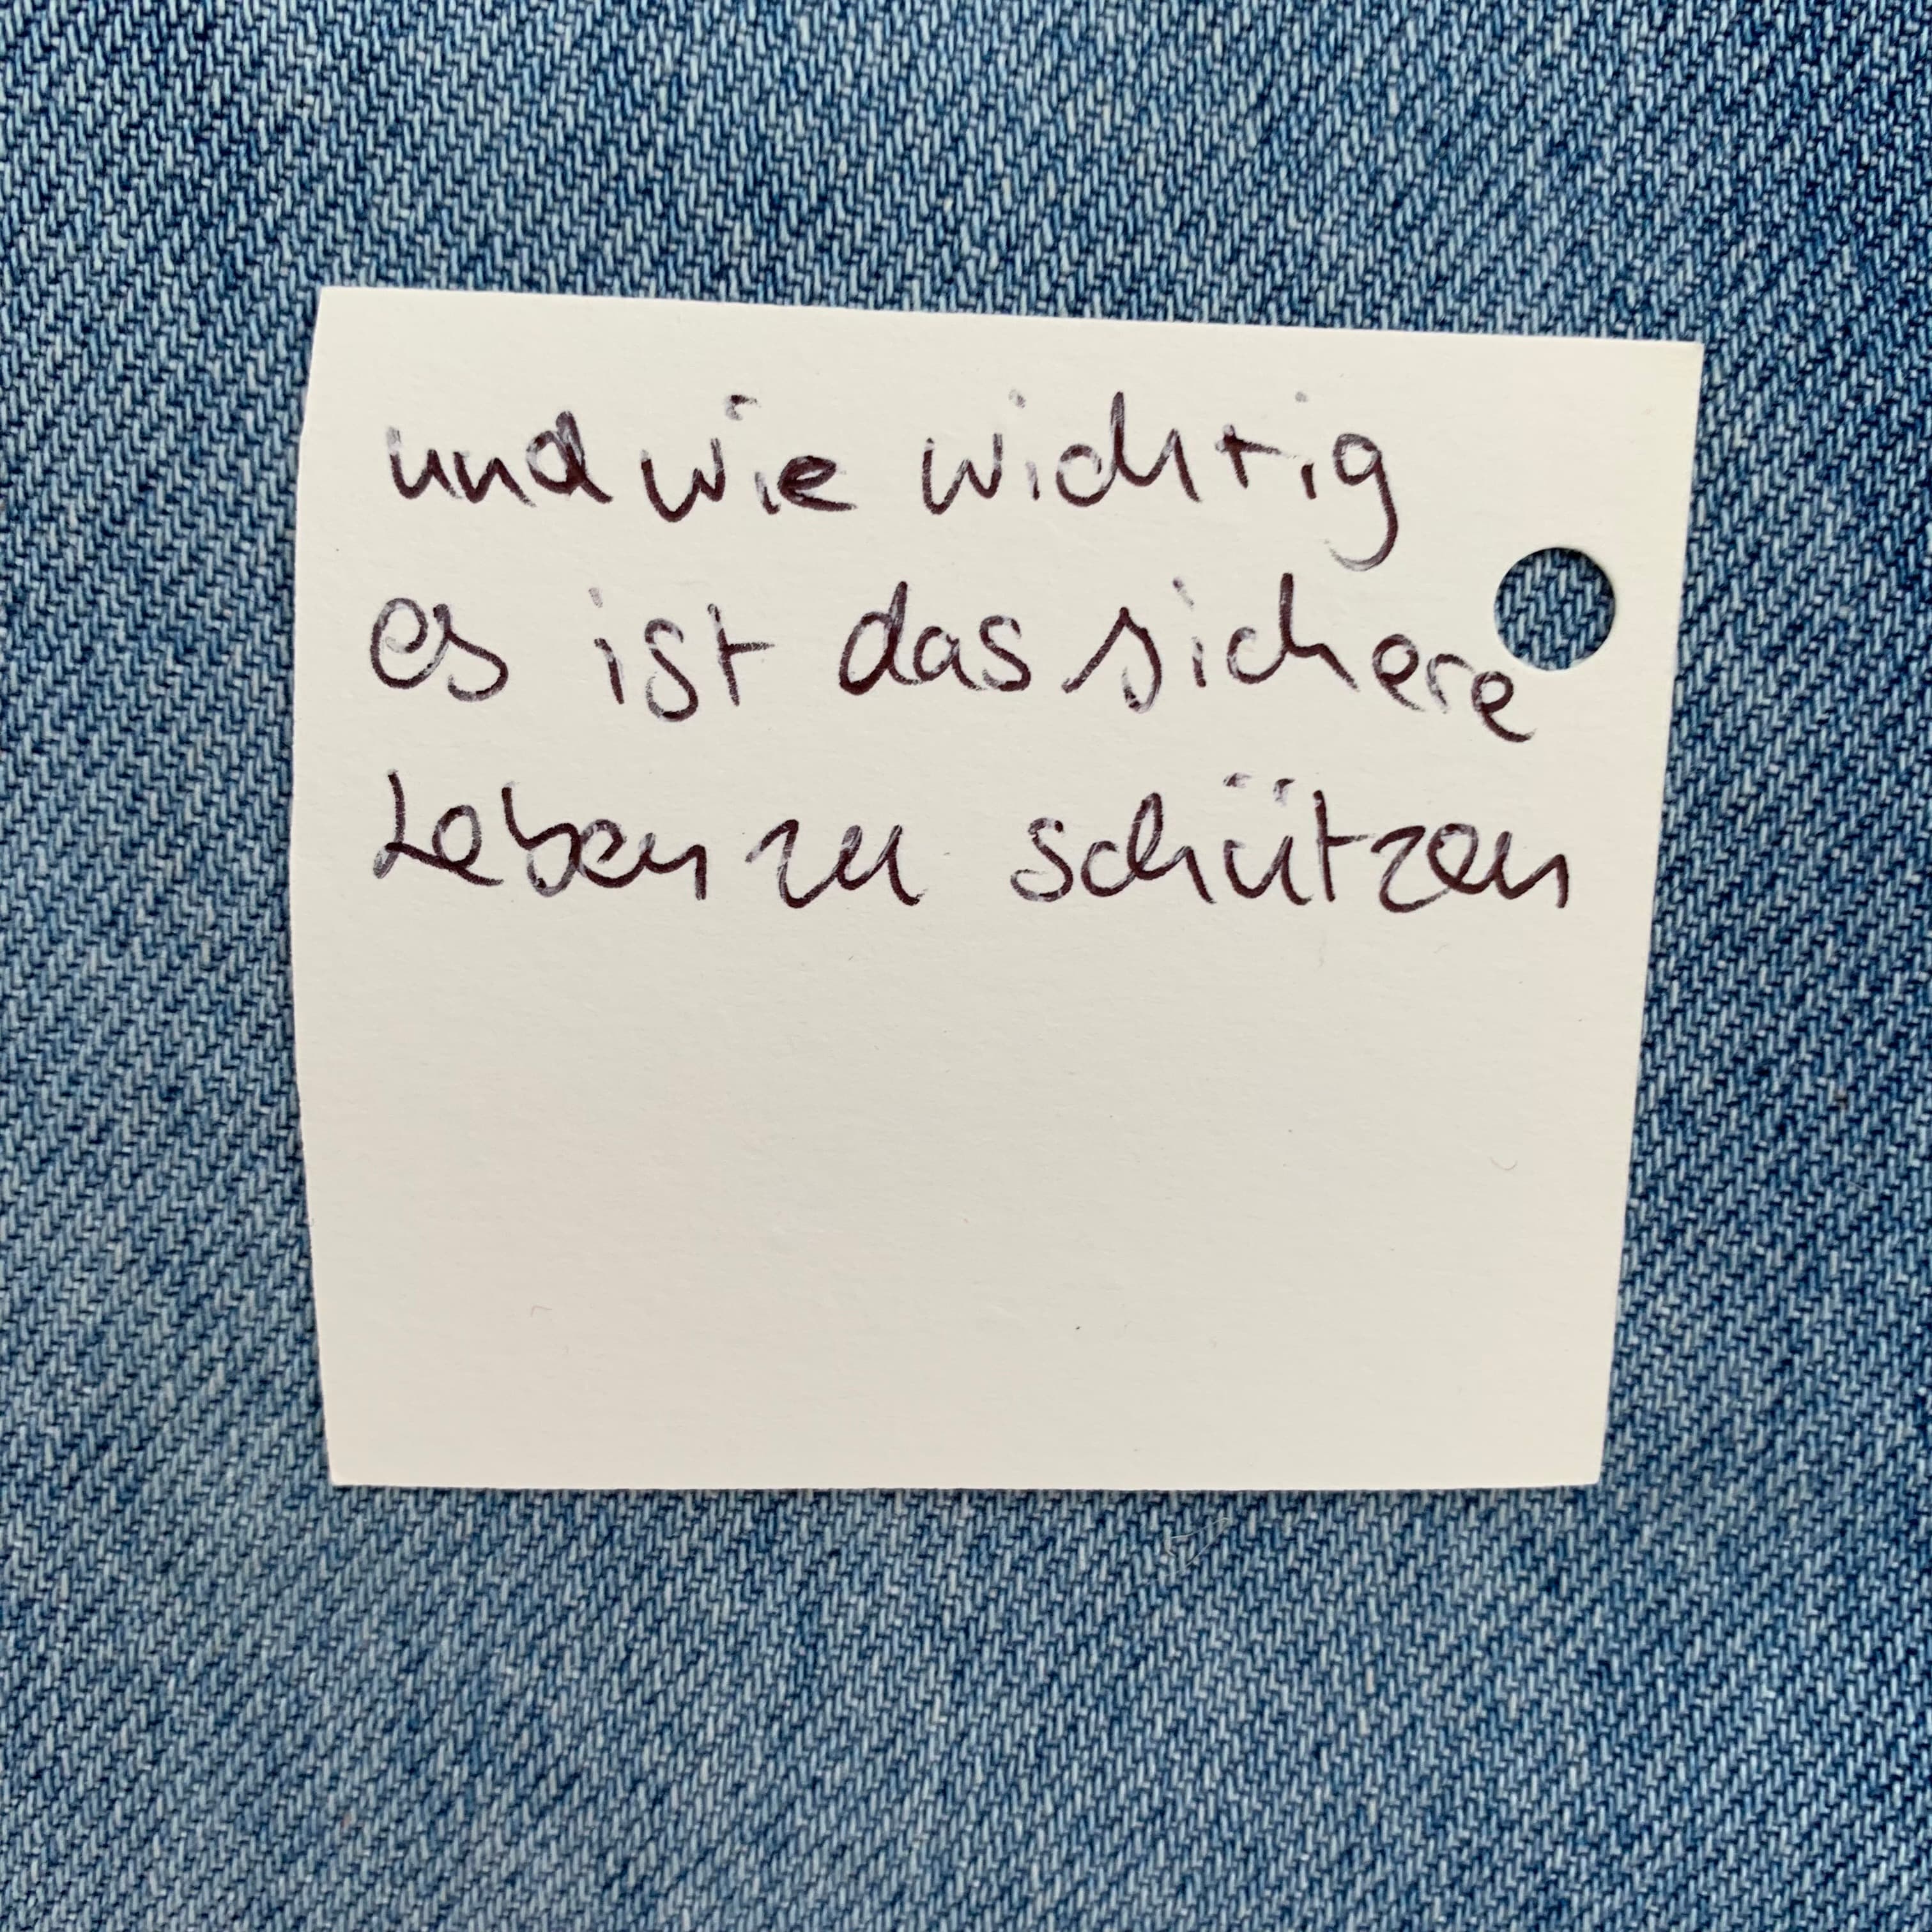 und wie wichtig
es ist das sichere
Leben zu schützen